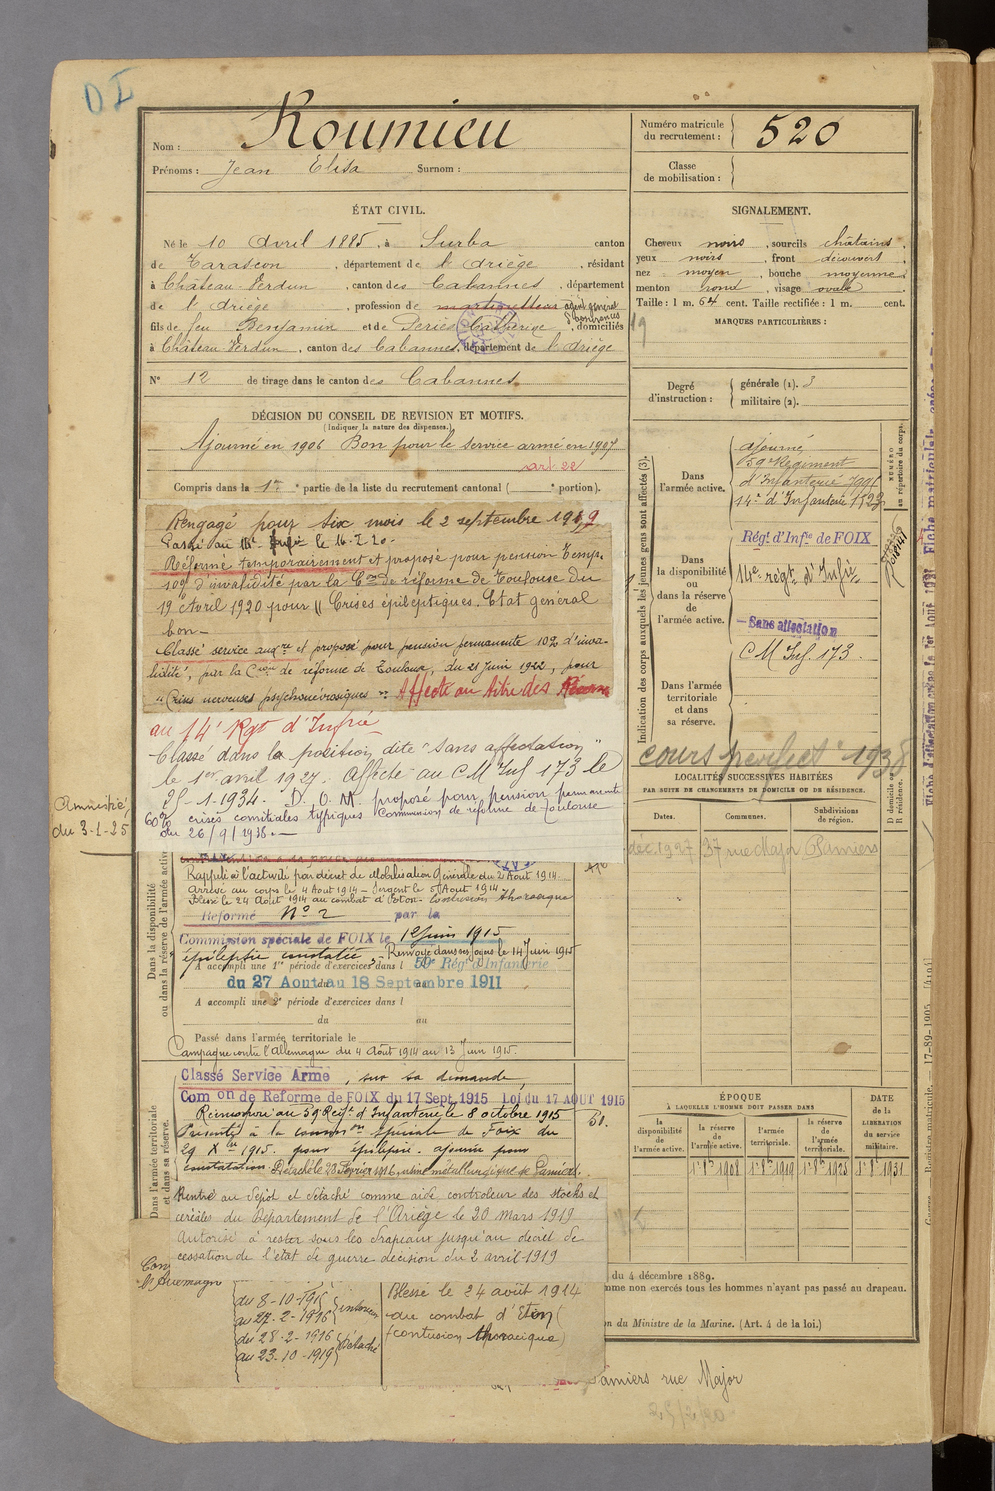 DI
Nom : Roumieu
Prénoms : Jean Elisa Surnom :
Numéro matricule du recrutement : 520
Classe de mobilisation :
ÉTAT CIVIL.
Né le 10 Avril 1885, à Surba canton
de Tarascon, département de l'Ariège, résidant
à Château-Verdun, canton des Cabannes, département
de l'Ariège, profession de agent général d'assurances
fils de feu Benjamin et de Series Catherine, domiciliés
à Château Verdun, canton des Cabannes, département de l'Ariège
N° 12 de tirage dans le canton des Cabannes
SIGNALEMENT.
Cheveux noirs, sourcils châtains,
yeux noirs, front découvert,
nez moyen, bouche moyenne,
menton rond, visage ovale
Taille : 1 m. 64 cent. Taille rectifiée : 1 m. cent.
MARQUES PARTICULIÈRES :
Degré d'instruction : générale (1). 3
militaire (2).
DÉCISION DU CONSEIL DE REVISION ET MOTIFS.
(Indiquer la nature des dispenses.)
Ajourné en 1906 Bon pour le service armé en 1907
art 22
Compris dans la 1re partie de la liste du recrutement cantonal ( portion).
Rengagé pour six mois le 2 septembre 1919
Passé au le 16-2-20-
Réforme temporairement et proposé pour pension temp.
10% d'invalidité par la Con de réforme de Toulouse du
19 Avril 1920 pour "Crises épileptiques. Etat général
bon-
Classé service auxre et proposé pour pension permanente 10% d'inva-
lidité, par la Cion de réforme de Toulouse, du 21 Juin 1922, pour
"Crises nerveuses psychonévrosiques" Affecté au titre des
au 14e Rgt d'Infrie
Classé dans la position dite "sans affectation"
le 1er avril 1927. Affecté au C M Inf 173 le
25-1-1934. D. O. M. proposé pour pension permanente
60% crises comitiales typiques Commission de réforme de Toulouse
du 26/9/1938.—
Amnistié
du 3-1-25
Dans la disponibilité ou dans la réserve de l'armée active
Rappelé à l'activité par décret de Mobilisation Générale du 2 Août 1914.
Arrivé au corps le 4 Août 1914 - Sergent le 5 Août 1914
Blessé le 24 Août 1914 au combat d'Eton. Contusion thoracique
Réformé N° 2 par la
Commission spéciale de FOIX le 1er Juin 1915
épilepsie constatée, - Renvoyé dans ses foyers le 14 Juin 1915
A accompli une 1re période d'exercices dans l 59e Régt d'Infanterie
du 27 Aout au 18 Septembre 1911
A accompli une 2e période d'exercices dans l
du au
Passé dans l'armée territoriale le
Campagne contre l'Allemagne du 4 Août 1914 au 13 Juin 1915.
Dans l'armée territoriale et dans sa réserve.
Classé Service Armé, sur sa demande,
Com on de Reforme de FOIX du 17 Sept 1915 Loi du 17 AOUT 1915
Réincorporé au 59 Régt d'Infanterie le 8 octobre 1915
Présenté à la common spéciale de Foix du
29 Xbre 1915. pour épilepsie. ajourné pour
constatation. Détaché le 28 Février 1916, usine métallurgique de Pamiers.
Rentré au dépôt et détaché comme aide contrôleur des stocks et
céréales du Département de l'Ariège le 20 mars 1919
Autorisé à rester sous les drapeaux jusqu'au décret de
cessation de l'état de guerre décision du 2 avril-1919
l'Allemagne
du 8-10-1915
au 27-2-1916 intérieur
du 28-2-1916
au 23-10-1919 Détaché
Blessé le 24 août 1914
au combat d'Eton
(contusion thoracique)
Indication des corps auxquels les jeunes gens sont affectés (3).
Dans l'armée active.
ajourné
59e Régiment
d'Infanterie
14e d'Infanterie
NUMÉRO au répertoire du corps.
Dans la disponibilité ou dans la réserve de l'armée active.
Régt d'Infie de FOIX
14e régt d'Infie
Sans affectation
C M Inf. 173.
Dans l'armée territoriale et dans sa réserve.
1938
LOCALITÉS SUCCESSIVES HABITÉES
PAR SUITE DE CHANGEMENTS DE DOMICILE OU DE RÉSIDENCE.
Dates. Communes. Subdivisions de région. D domicile ou R résidence.
dec 1927 37 rue Major Pamiers
ÉPOQUE
À LAQUELLE L'HOMME DOIT PASSER DANS
la disponibilité de l'armée active.
la réserve de l'armée active.
l'armée territoriale.
la réserve de l'armée territoriale.
DATE de la LIBÉRATION du service militaire.
1er 8bre 1908 1er 8bre 1919 1er 8bre 1925 1er 8bre 1931
du 4 décembre 1889.
mme non exercés tous les hommes n'ayant pas passé au drapeau.
on du Ministre de la Marine. (Art. 4 de la loi.)
Pamiers rue Major